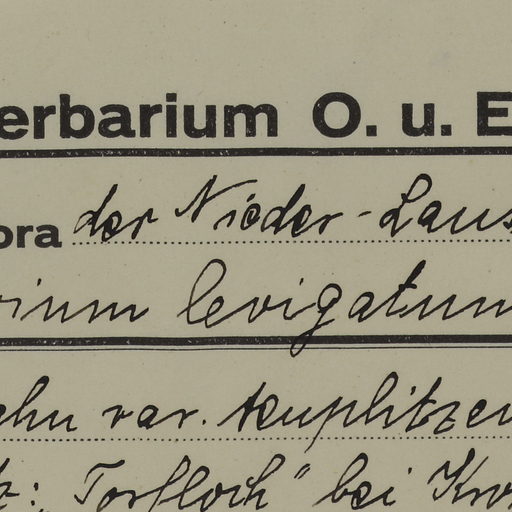 erbarium O. u. E
ora der Nieder-Laus
rium levigatum
ehn var. teuplitzen
tz: „Torfloch" bei Kro